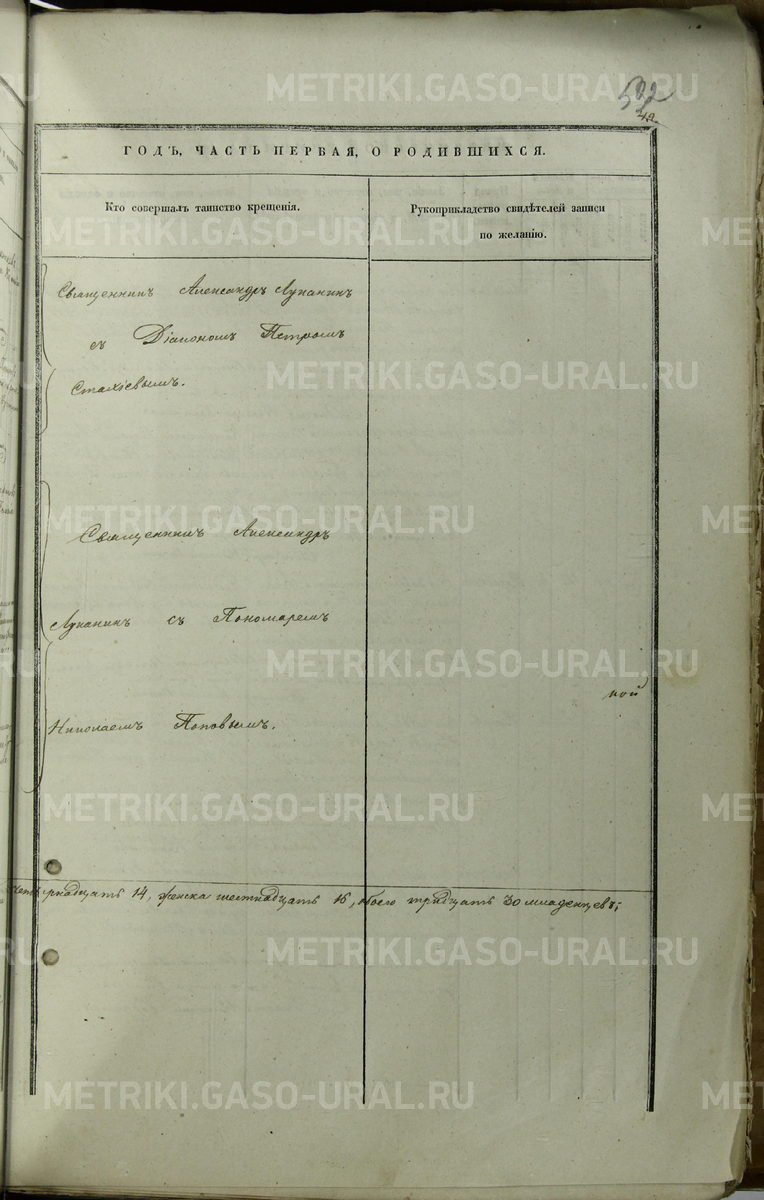 METRIKI.GASO-URAL.RU
502
42.
ГОДЪ, ЧАСТЬ ПЕРВАЯ, О РОДИВШИХСЯ.
Кто совершалъ таинство крещенія.
Рукоприкладство свидѣтелей записи
по желанію.
Священникъ Александръ Луканинъ
съ Діакономъ Петромъ
Стахіевымъ.
Священникъ Александръ
Луканинъ съ Пономаремъ
Николаемъ Поповымъ.
кой
четырнадцать 14, женска шестнадцать 16, обоего тридцать 30 младенцевъ;